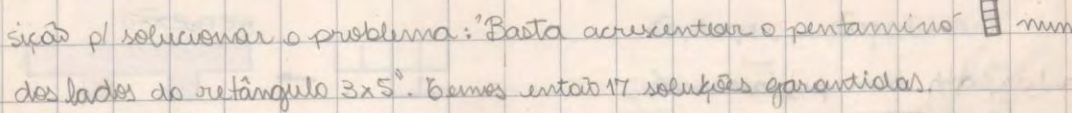 sição p/ solucionar o problema: "Basta acrescentar o pentaminó num
dos lados do retângulo 3x5". Temos então 17 soluções garantidas.